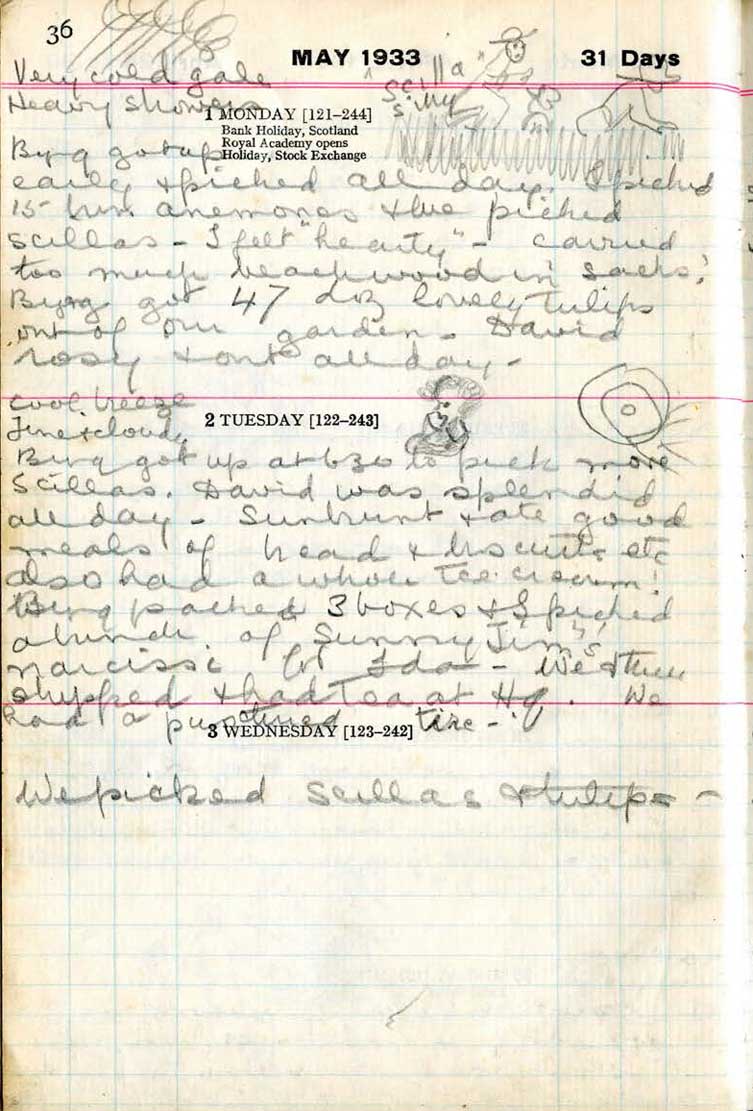 36
MAY 1933
31 Days
Very cold gale
Heavy showers
"Scilla"
1 MONDAY [121–244]
Bank Holiday, Scotland
Royal Academy opens
Holiday, Stock Exchange
Byng got up
early & picked all day. I picked
15 bun anemones & We picked
scillas - I felt "hearty" - carried
too much beachwood in sacks!
Byng got 47 doz lovely tulips
out of our garden - David
rosy & out all day -
cool breeze
Fine & cloudy
2 TUESDAY [122–243]
Byng got up at 6.30 to pick more
Scillas. David was splendid
all day - Sunburnt & ate good
meals of bread & biscuits etc
also had a whole ice cream!
Byng packed 3 boxes & I picked
a bunch of Sunny Jim's
narcissi for Ida - We then
shipped & had tea at Hq. We
had a punctured tire -
3 WEDNESDAY [123–242]
We picked scillas & tulips -